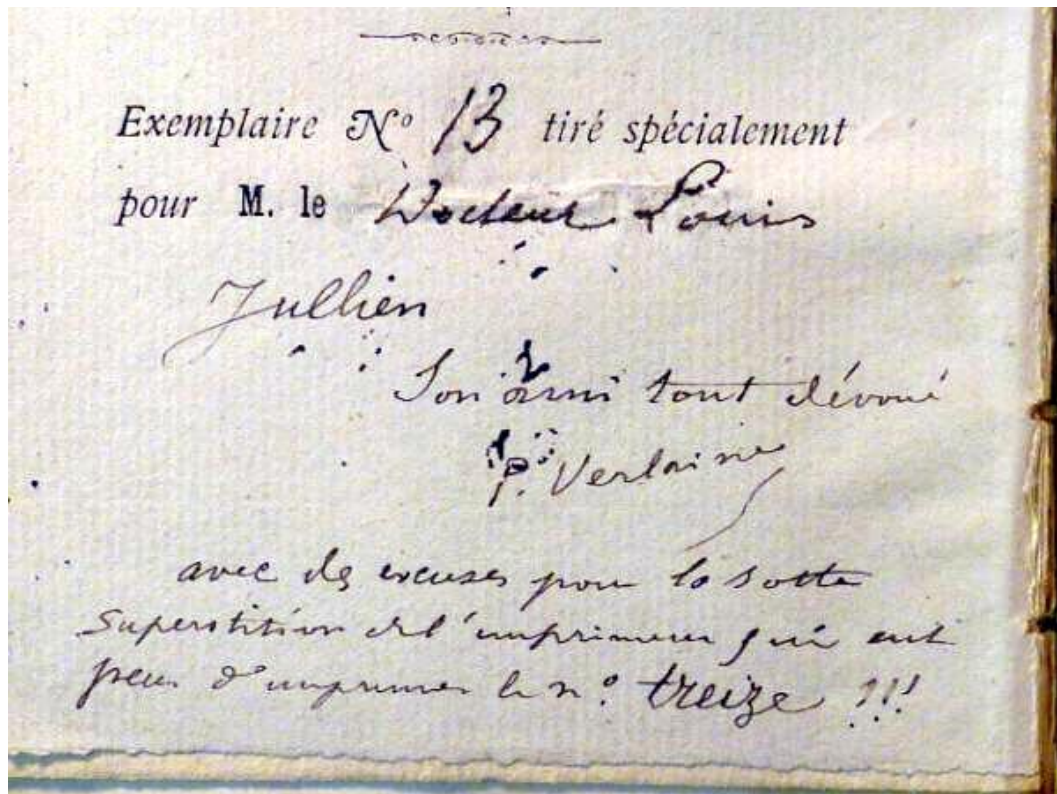 Exemplaire Nº 13 tiré spécialement
pour M. le Docteur Louis
Jullien
Son ami tout dévoué
P. Verlaine
avec des excuses pour la sotte
superstition de l'imprimeur qui eut
peur d'imprimer le nº treize !!!